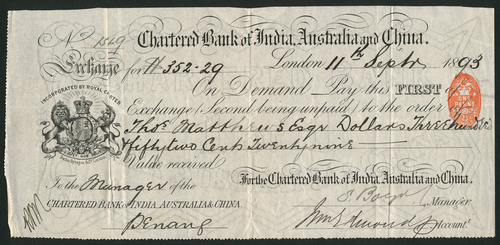 No 1549
Chartered Bank of India, Australia and China.
Exchange for $352-29 London 11th Septr 1893
INCORPORATED BY ROYAL CHARTER
On Demand Pay this FIRST of
Exchange (Second being unpaid) to the order
Thos. Matthews Esqr Dollars Three hundred
fiftytwo Cents Twentynine
Value received
To the Manager of the For the Chartered Bank of India, Australia and China.
Manager
CHARTERED BANK OF INDIA, AUSTRALIA & CHINA.
Penang Accountt.